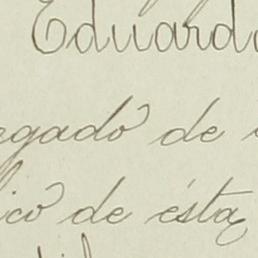 Eduardo
egado de
ico de ésta